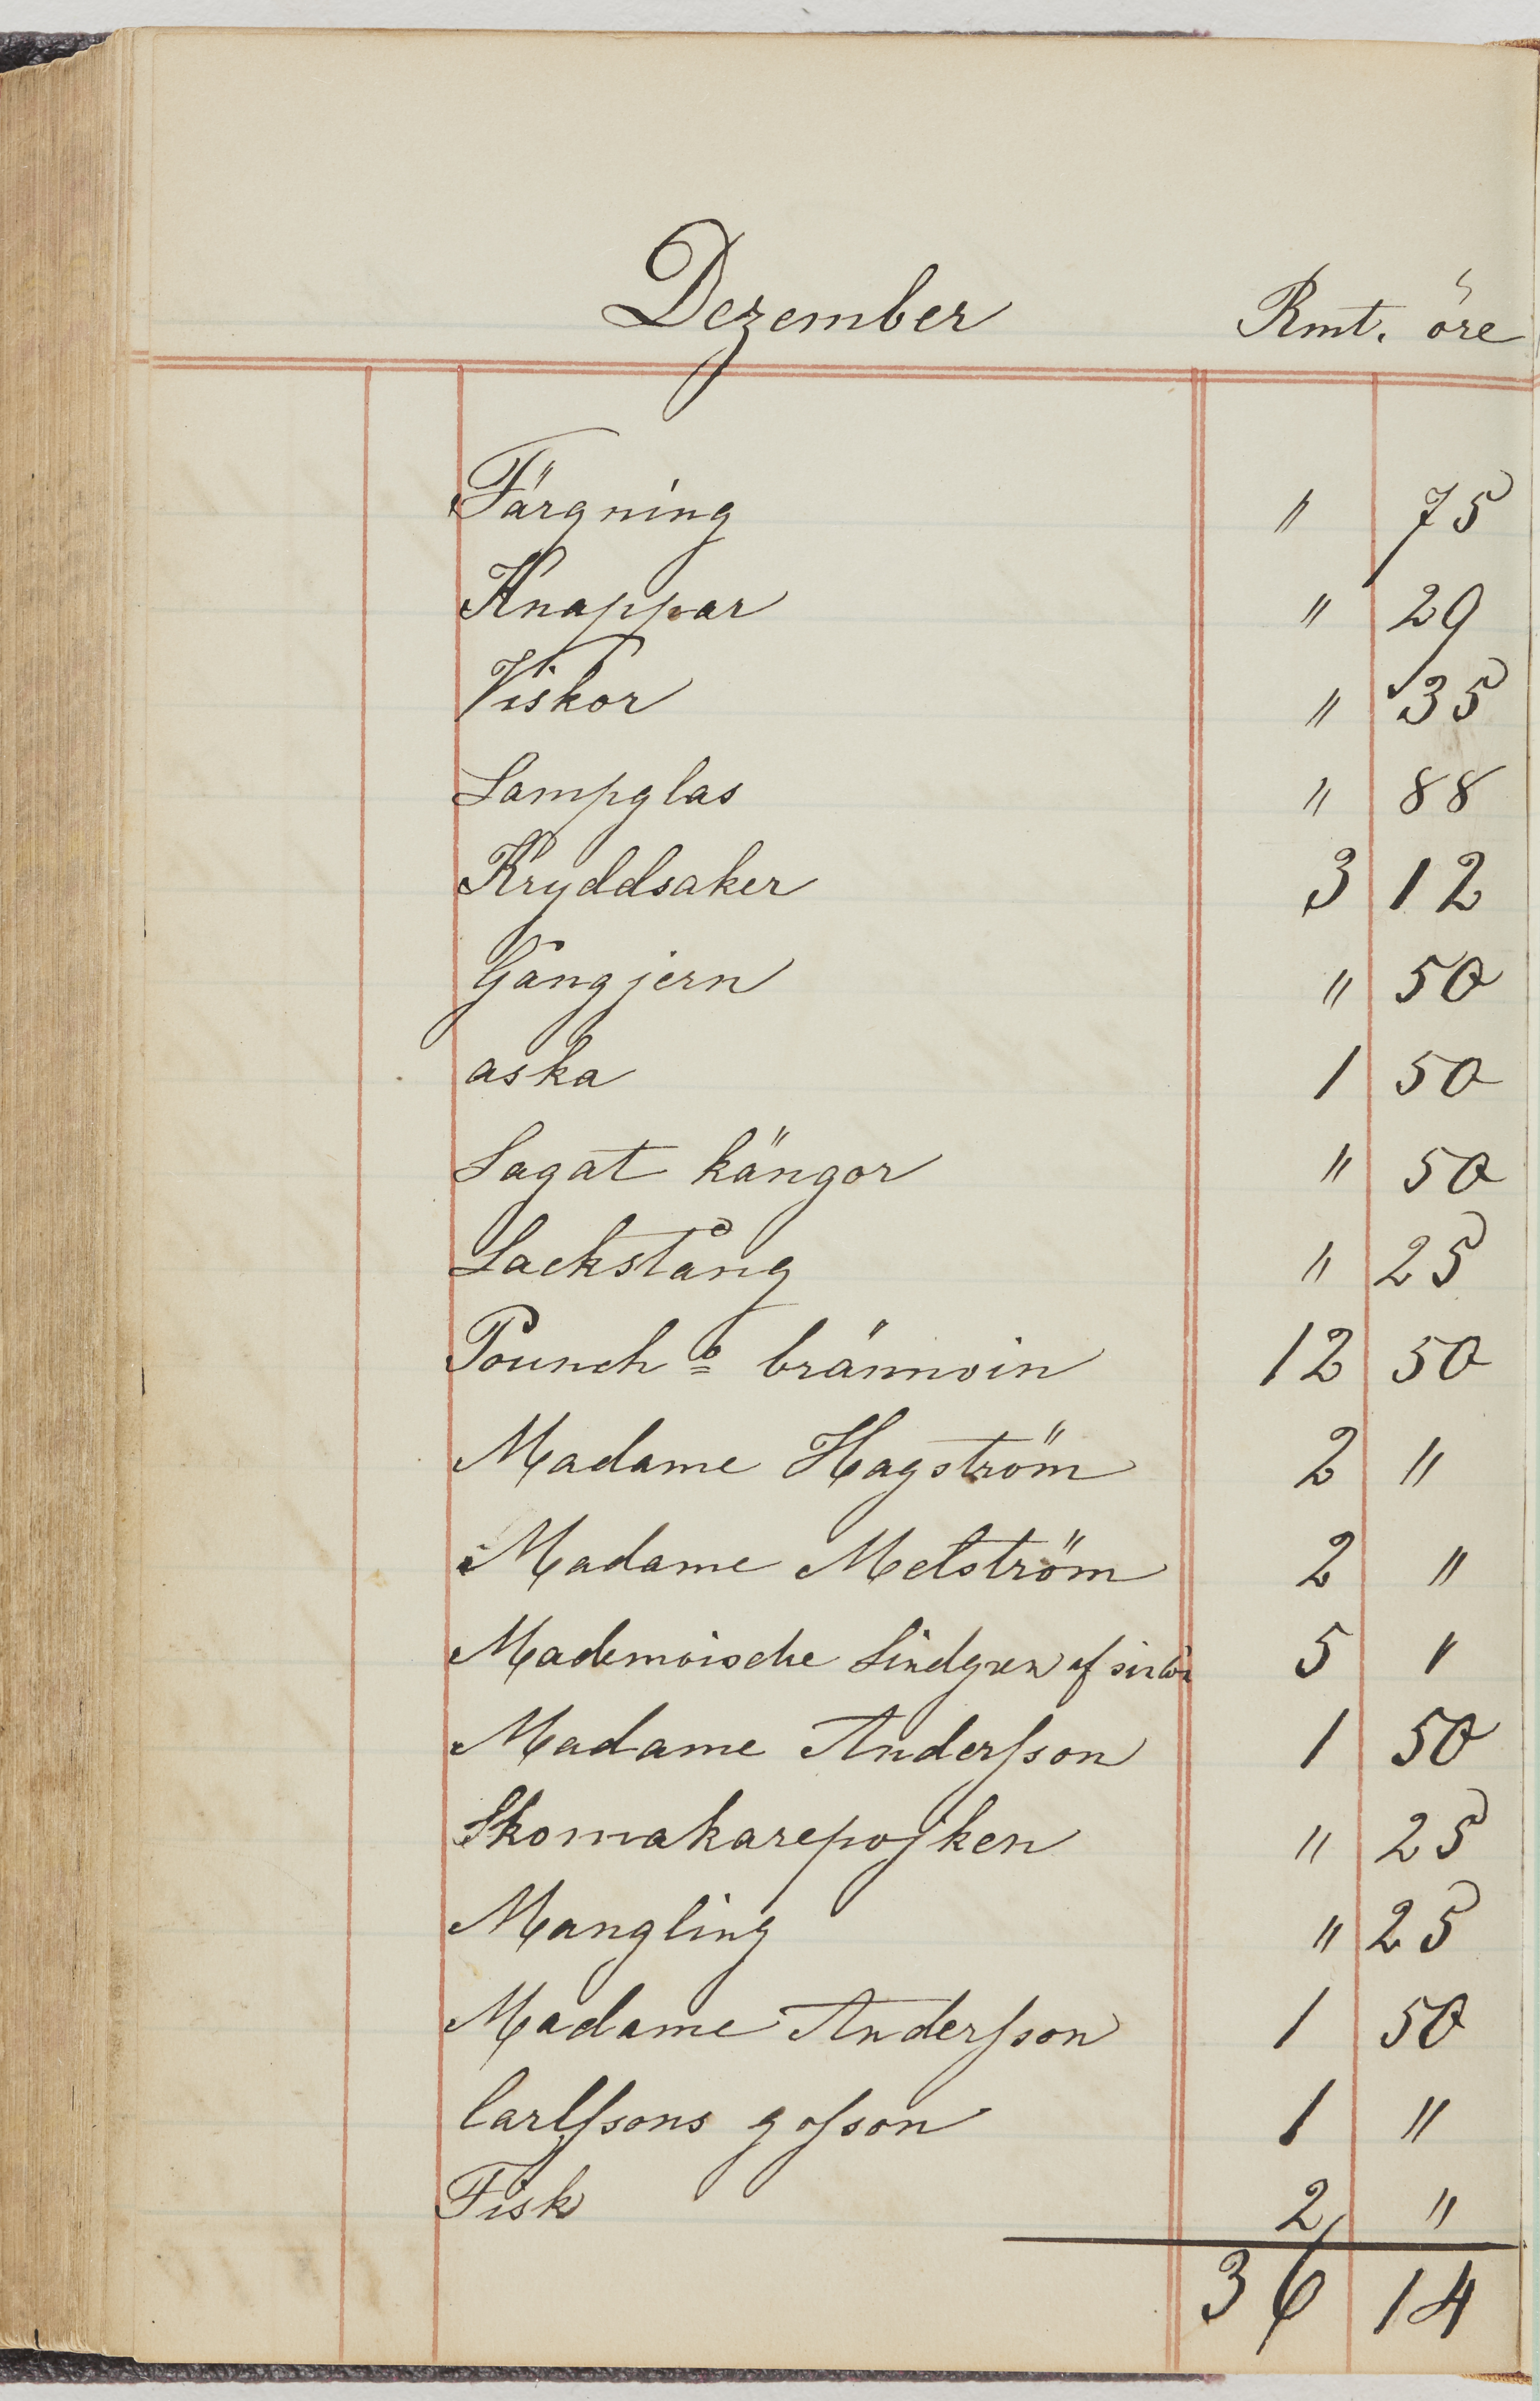 Dezember Rmt. öre
Färgning " 75
Knappar " 29
Viskor " 35
Lampglas " 88
Kryddsaker 3 12
Gångjern " 50
aska 1 50
Lagat kängor " 50
Lackstång " 25
Pounch o brännvin 12 50
Madame Hagström 2 "
Madame Melström 2 "
Lindgren af 5 "
Madame Andersson 1 50
Skomakarepojken " 25
Mangling " 25
Madame Andersson 1 50
Carlssons gosson 1 "
Fisk 2 "
36 14